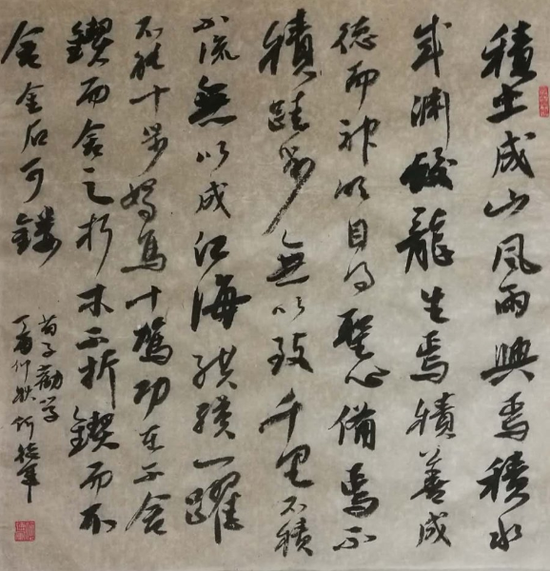 積土成山風雨興焉積水
成渊蛟龍生焉積善成
德而神明自得聖心備焉不
積跬步無以致千里不積
小流無以成江海騏驥一躍
不能十步駑馬十駕功在不舍
鍥而舍之朽木不折鍥而不
舍金石可鏤
荀子勸学
丁酉仲秋